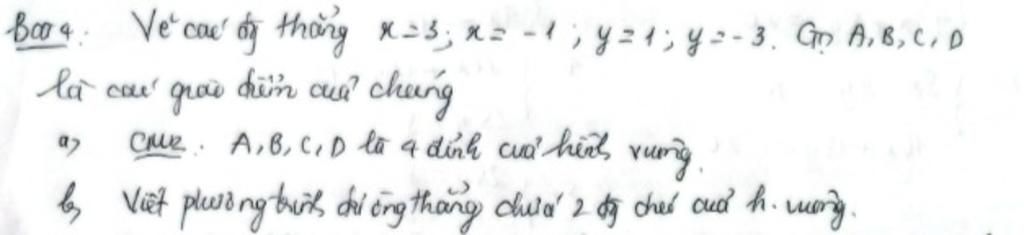 Bài 4: Vẽ các đg thẳng x=3; x=-1; y=1; y=-3. Gọi A, B, C, D
là các giao điểm của chúng
a) CMR. A, B, C, D là 4 đỉnh của hình vuông.
b) Viết phương trình đường thẳng chứa 2 đg chéo của h. vuông.